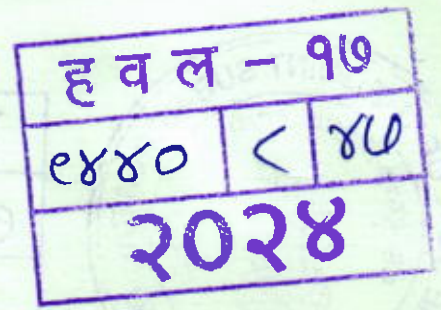 ह व ल - १७
९४४० ८ ४७
२०२४